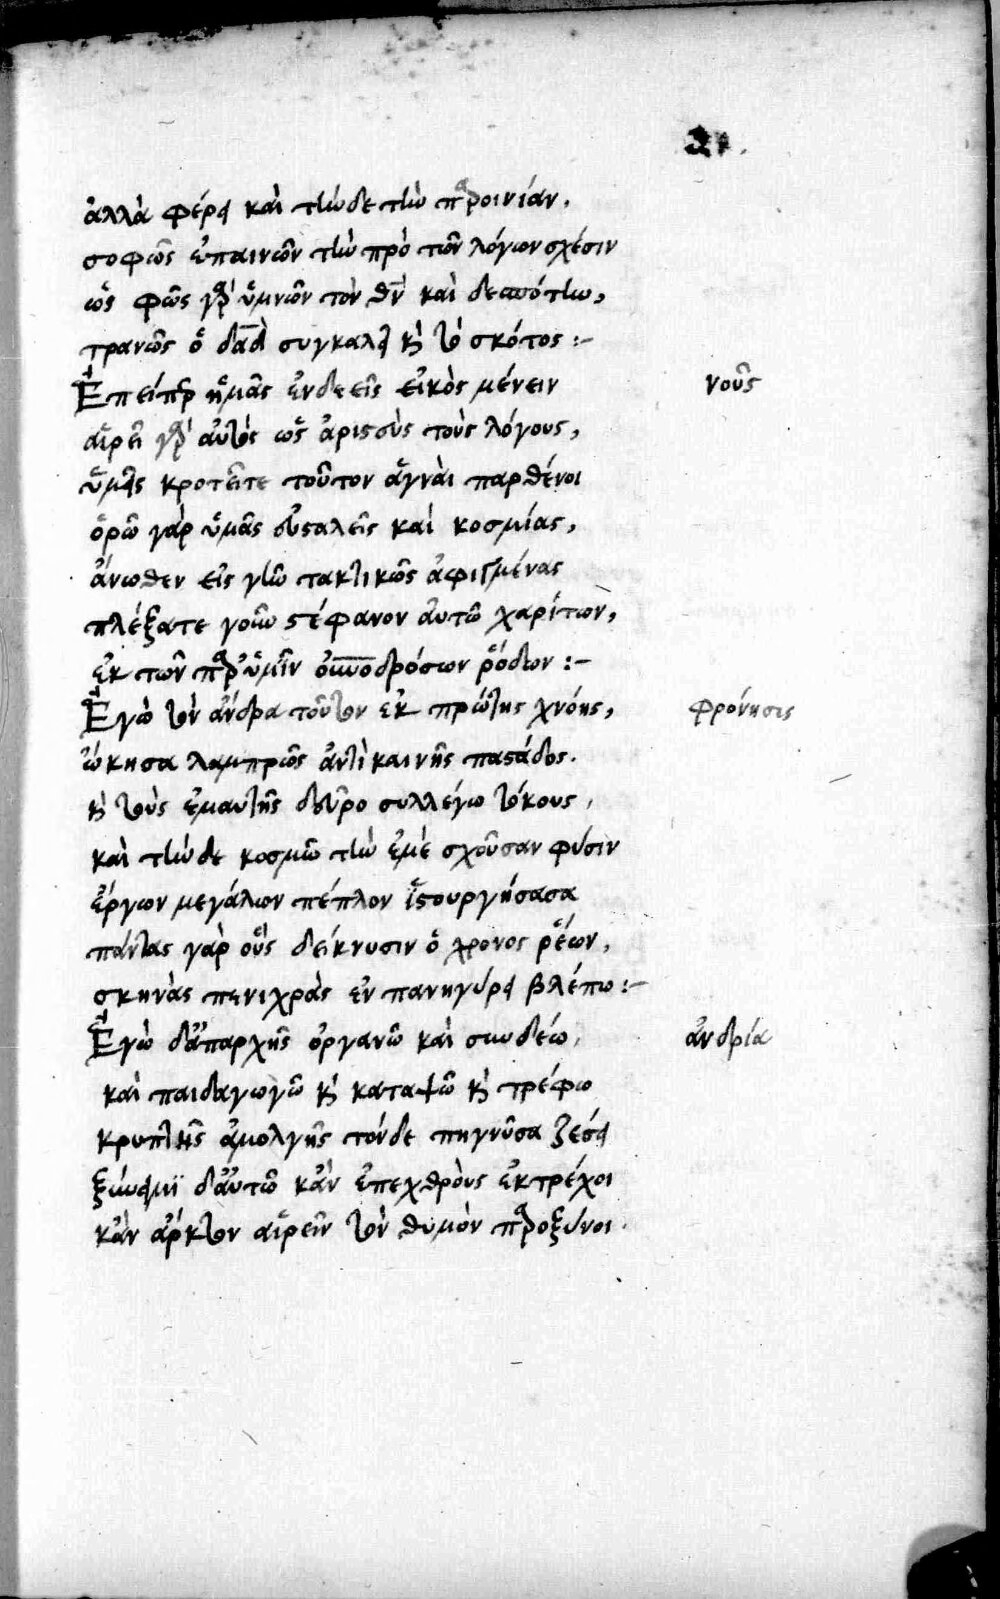 21.
ἀλλὰ φέρει καὶ τήνδε τὴν παροινίαν.
σοφῶς ἐπαινῶν τὴν πρὸ τῶν λόγων σχέσιν
ὡς φῶς γὰρ ὑμνῶν τὸν θν̅ καὶ δεσπότην,
τρανῶς ὁ δᾱδ συγκαλεῖ καὶ τὸ σκότος :-
Ἐπείπερ ἡμᾶς ἐνδεεῖς εἰκὸς μένειν
νοῦς
αἱρεῖ γὰρ αὐτὸς ὡς ἀριστεὺς τοὺς λόγους,
ὑμεῖς κροτεῖτε τοῦτον ἁγναὶ παρθένοι
ὁρῶ γὰρ ὑμᾶς εὐσταλεῖς καὶ κοσμίας,
ἄνωθεν εἰς γῆν τακτικῶς ἀφιγμένας
πλέξατε γοῦν στέφανον αὐτῶ χαρίτων,
ἐκ τῶν παρ' ὑμῖν οὐνοδρόσων ῥόδων :-
Ἐγὼ τὸν ἄνδρα τοῦτον ἐκ πρώτης χνόης,
φρόνησις
ὤκησα λαμπρῶς ἀντὶ καινῆς παστάδος.
καὶ τοὺς ἐμαυτῆς δεῦρο συλλέγω τόκους,
καὶ τήνδε κοσμῶ τὴν ἐμὲ σχοῦσαν φύσιν
ἔργων μεγάλων πέπλον ἱστουργήσασα
πάντας γὰρ οὓς δείκνυσιν ὁ χρόνος ῥέων,
σκηνὰς πενιχρὰς ἐν πανηγύρει βλέπω :-
Ἐγὼ δ' ἀπαρχῆς ὀργανῶ καὶ συνδέω,
ἀνδρία
καὶ παιδαγωγῶ καὶ καταψῶ καὶ τρέφω
κρυπτῆς ἀμολγῆς τόνδε πηγνῦσα ζέσει
ξύνειμϊ δ' αὐτῶ κἂν ἐπεχθροὺς ἐκτρέχοι
κἂν ἄρκτον αἱρεῖν τὸν θυμὸν παροξύνοι.